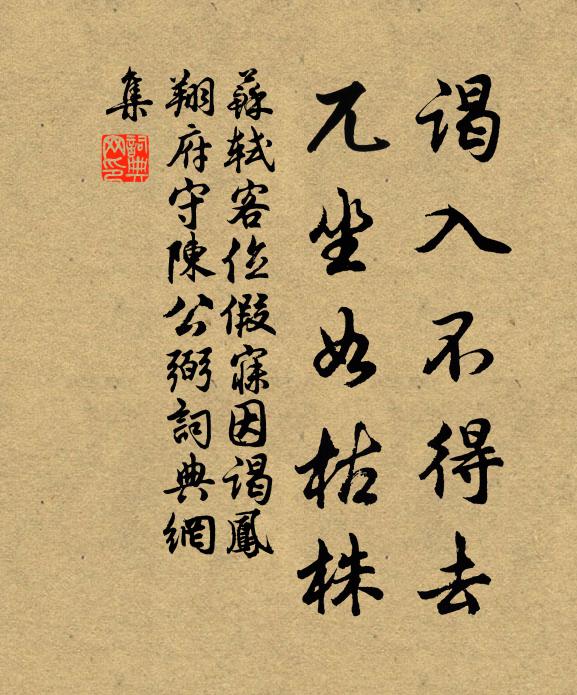 谒入不得去
兀坐如枯株
蘇軾客位假寐因谒鳳
翔府守陳公弼詞典網
集
詞典
网印